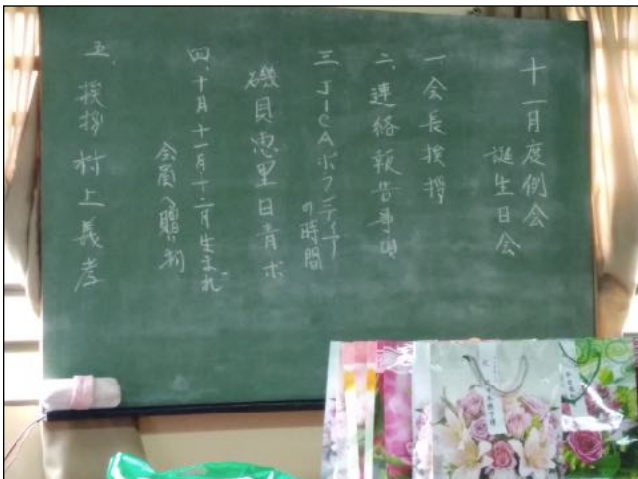 十一月度例会
誕生日会
一 会長挨拶
二、連絡報告事項
三 JICAボランティア
の時間
磯貝恵里日青ボ
四、十月十一月・十二月生まれ
会員へ贈物
五、挨拶 村上義孝